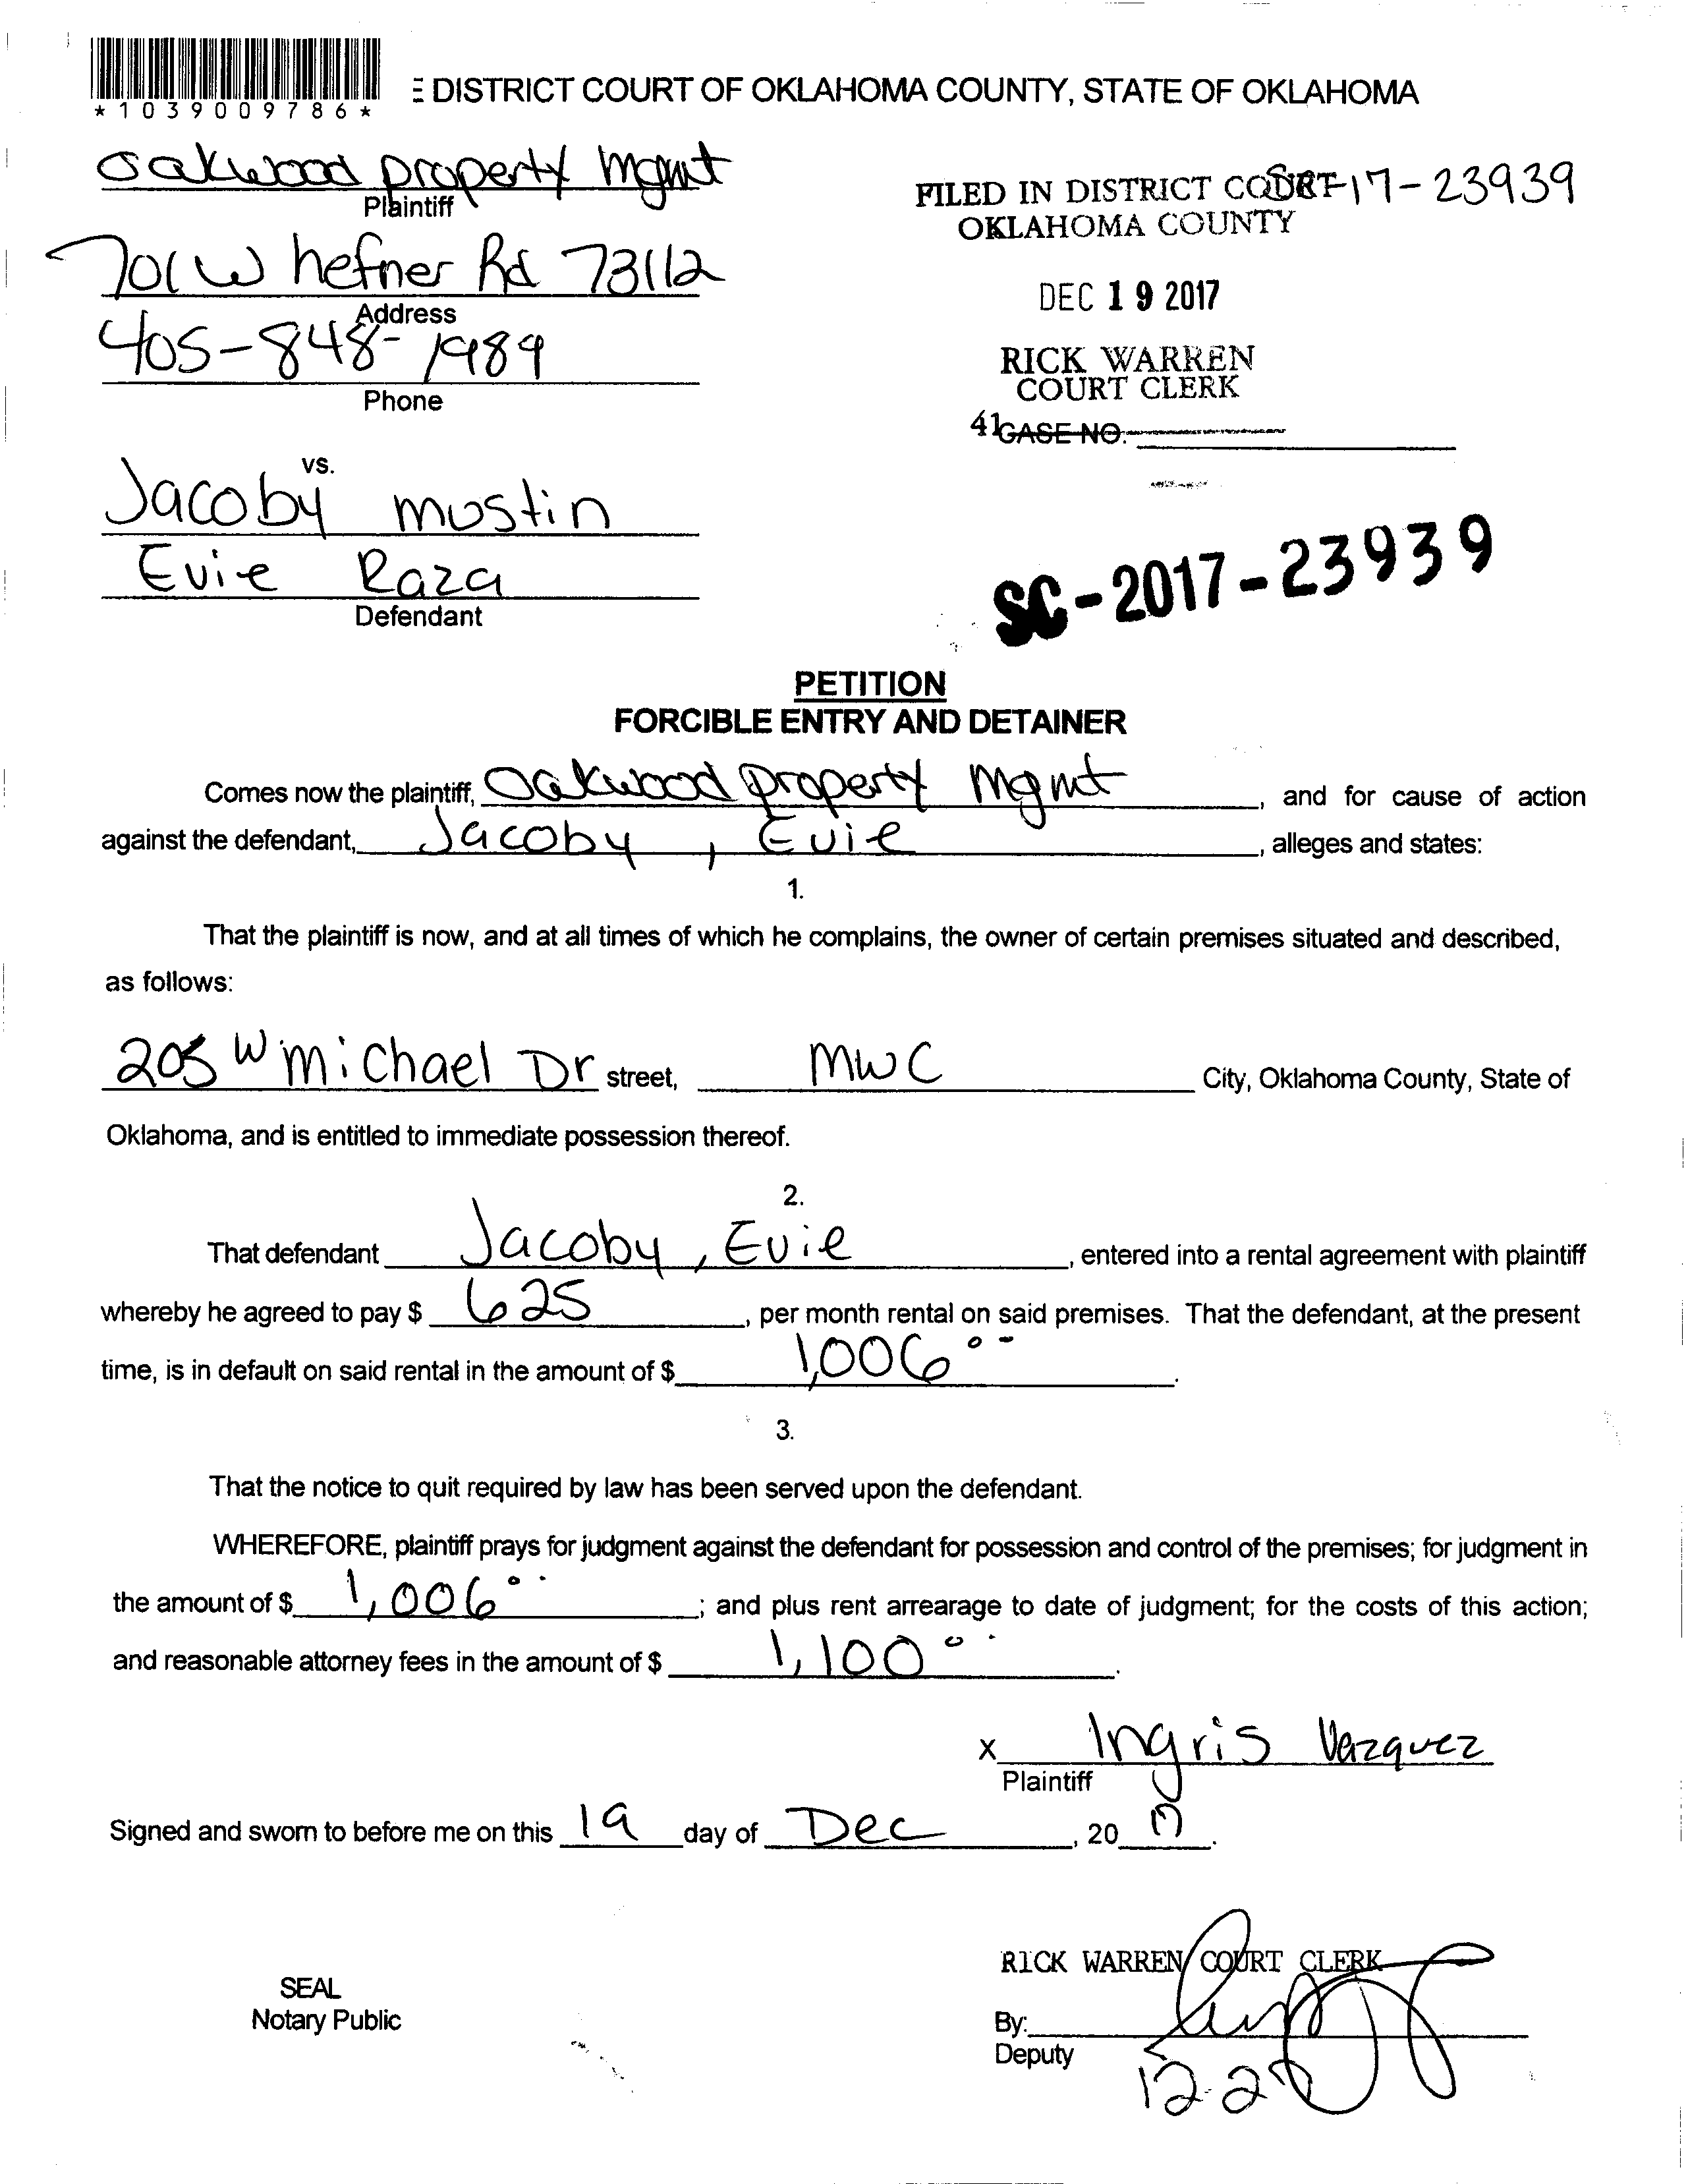 *1039009786*
DISTRICT COURT OF OKLAHOMA COUNTY, STATE OF OKLAHOMA
Oakwood property mgmt
Plaintiff
FILED IN DISTRICT COURT 17-23939
OKLAHOMA COUNTY
701 W hefner Rd 73112
Address
DEC 19 2017
405-848-1989
Phone
RICK WARREN
COURT CLERK
41 CASE NO.
vs.
Jacoby mustin
Evie Raza
Defendant
SC-2017-23939
PETITION
FORCIBLE ENTRY AND DETAINER
Comes now the plaintiff, Oakwood property Mgmt, and for cause of action
against the defendant, Jacoby, Evie, alleges and states:
1.
That the plaintiff is now, and at all times of which he complains, the owner of certain premises situated and described,
as follows:
205 W michael Dr street, MWC City, Oklahoma County, State of
Oklahoma, and is entitled to immediate possession thereof.
2.
That defendant Jacoby, Evie, entered into a rental agreement with plaintiff
whereby he agreed to pay $ 625, per month rental on said premises. That the defendant, at the present
time, is in default on said rental in the amount of $ 1,006 00.
3.
That the notice to quit required by law has been served upon the defendant.
WHEREFORE, plaintiff prays for judgment against the defendant for possession and control of the premises; for judgment in
the amount of $ 1,006 00; and plus rent arrearage to date of judgment; for the costs of this action;
and reasonable attorney fees in the amount of $ 1,100 00.
x Ingris Vazquez
Plaintiff
Signed and sworn to before me on this 19 day of Dec, 20 17.
RICK WARREN COURT CLERK
SEAL
Notary Public
By:
Deputy